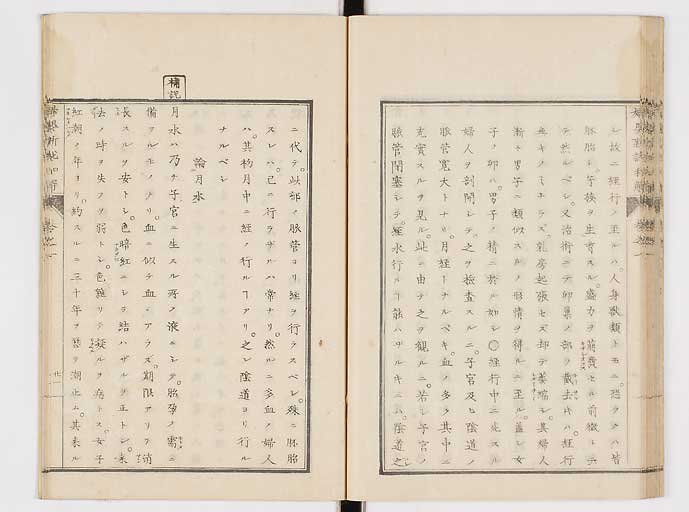 レ故ニ經行ノ至ルハ。人身獸類トモニ。恐クハ皆
胚胎シ。子孫ヲ生育スル。盛力ヲ萠發セル前徴ト云
テ然ルベシ。又治術ニテ卵巣ノ部ヲ截去キハ。經行
無キノミナラズ。乳房起張セズ却テ萎縮シ。其婦人
漸ク男子ニ類似スルノ形情ヲ得ルニ至ル。蓋シ女
子ノ卵ハ。男子ノ精ニ於ル如シ〇經行中ニ死スル
婦人ヲ剖開シテ。之ヲ檢査スルニ。子宮及ヒ陰道ノ
脈管寛大トナリ。月經トナルベキ。血ノ多ク其中ニ
充實スルヲ見ル。此ニ由テ之ヲ觀ルニ。若シ子宮ノ
脈管閉塞シテ。經水行ルヿ能ハザルキニハ。陰道之
ニ代テ。此部ノ脈管ヨリ經ヲ行ラスベシ。殊ニ胚胎
スレハ。已ニ行ラザルハ常ナリ。然ルニ多血ノ婦人
ハ。其初月中ニ經ノ行ルヿアリ。之レ陰道ヨリ行ル
ナルベシ
論月水
補説
月水ハ乃チ子宮ニ生スル所ノ液ニシテ。胎孕ノ需ニ
備フルモノナリ。血ニ似テ血ニアラズ。期限アリテ消
長スルヲ安トシ。色暗紅ニシテ結ハザルヲ正トシ。来
去ノ時ヲ失フヲ弱トシ。色雜リテ凝ルヲ病トス。女子
紅潮ノ年ヨリ。約スルニ三十年ヲ歴テ潮止ム。其来ル